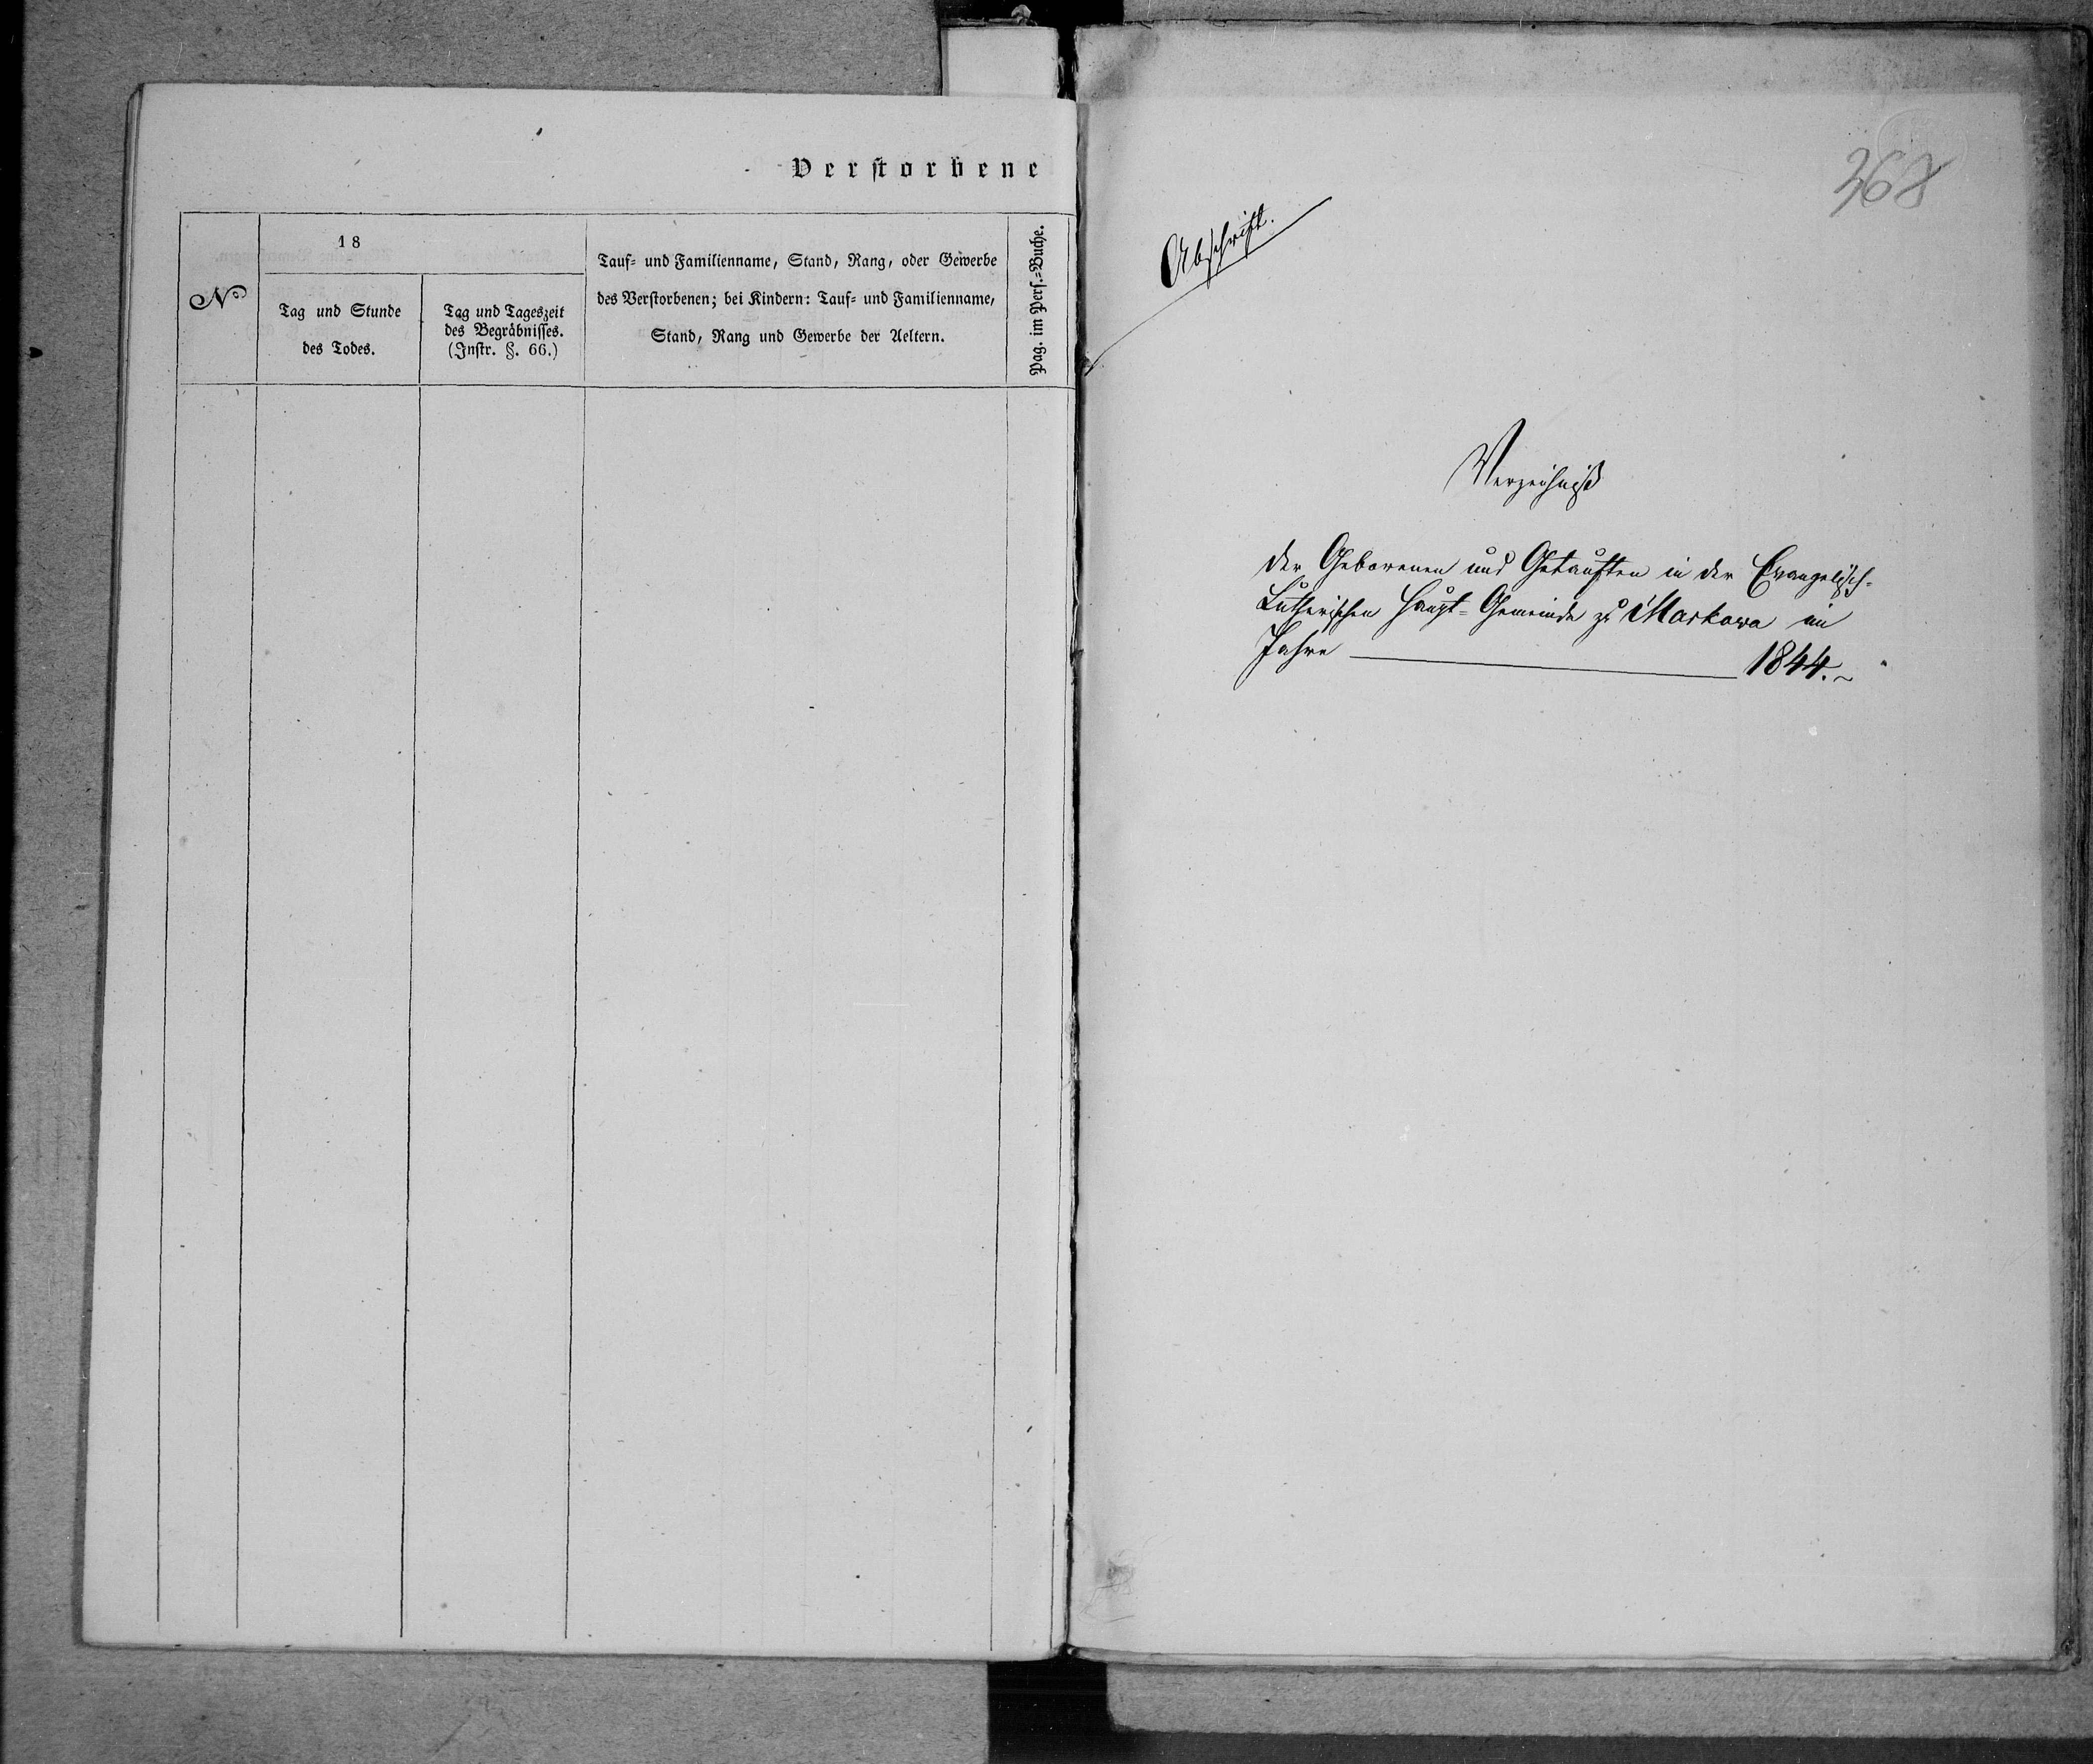 Verstorbene
No
18
Tag und Stunde
des Todes.
Tag und Tageszeit
des Begräbnisses.
(Instr. §. 66.)
Tauf- und Familienname, Stand, Rang, oder Gewerbe
des Verstorbenen; bei Kindern: Tauf- und Familienname,
Stand, Rang und Gewerbe der Aeltern.
Pag. im Pers.-Buche.
368
Abschrift.
Verzeichniß
der Geborenen und Getauften in der Evangelisch-
Lutherischen Haupt-Gemeinde zu Markowa im
Jahre 1844.